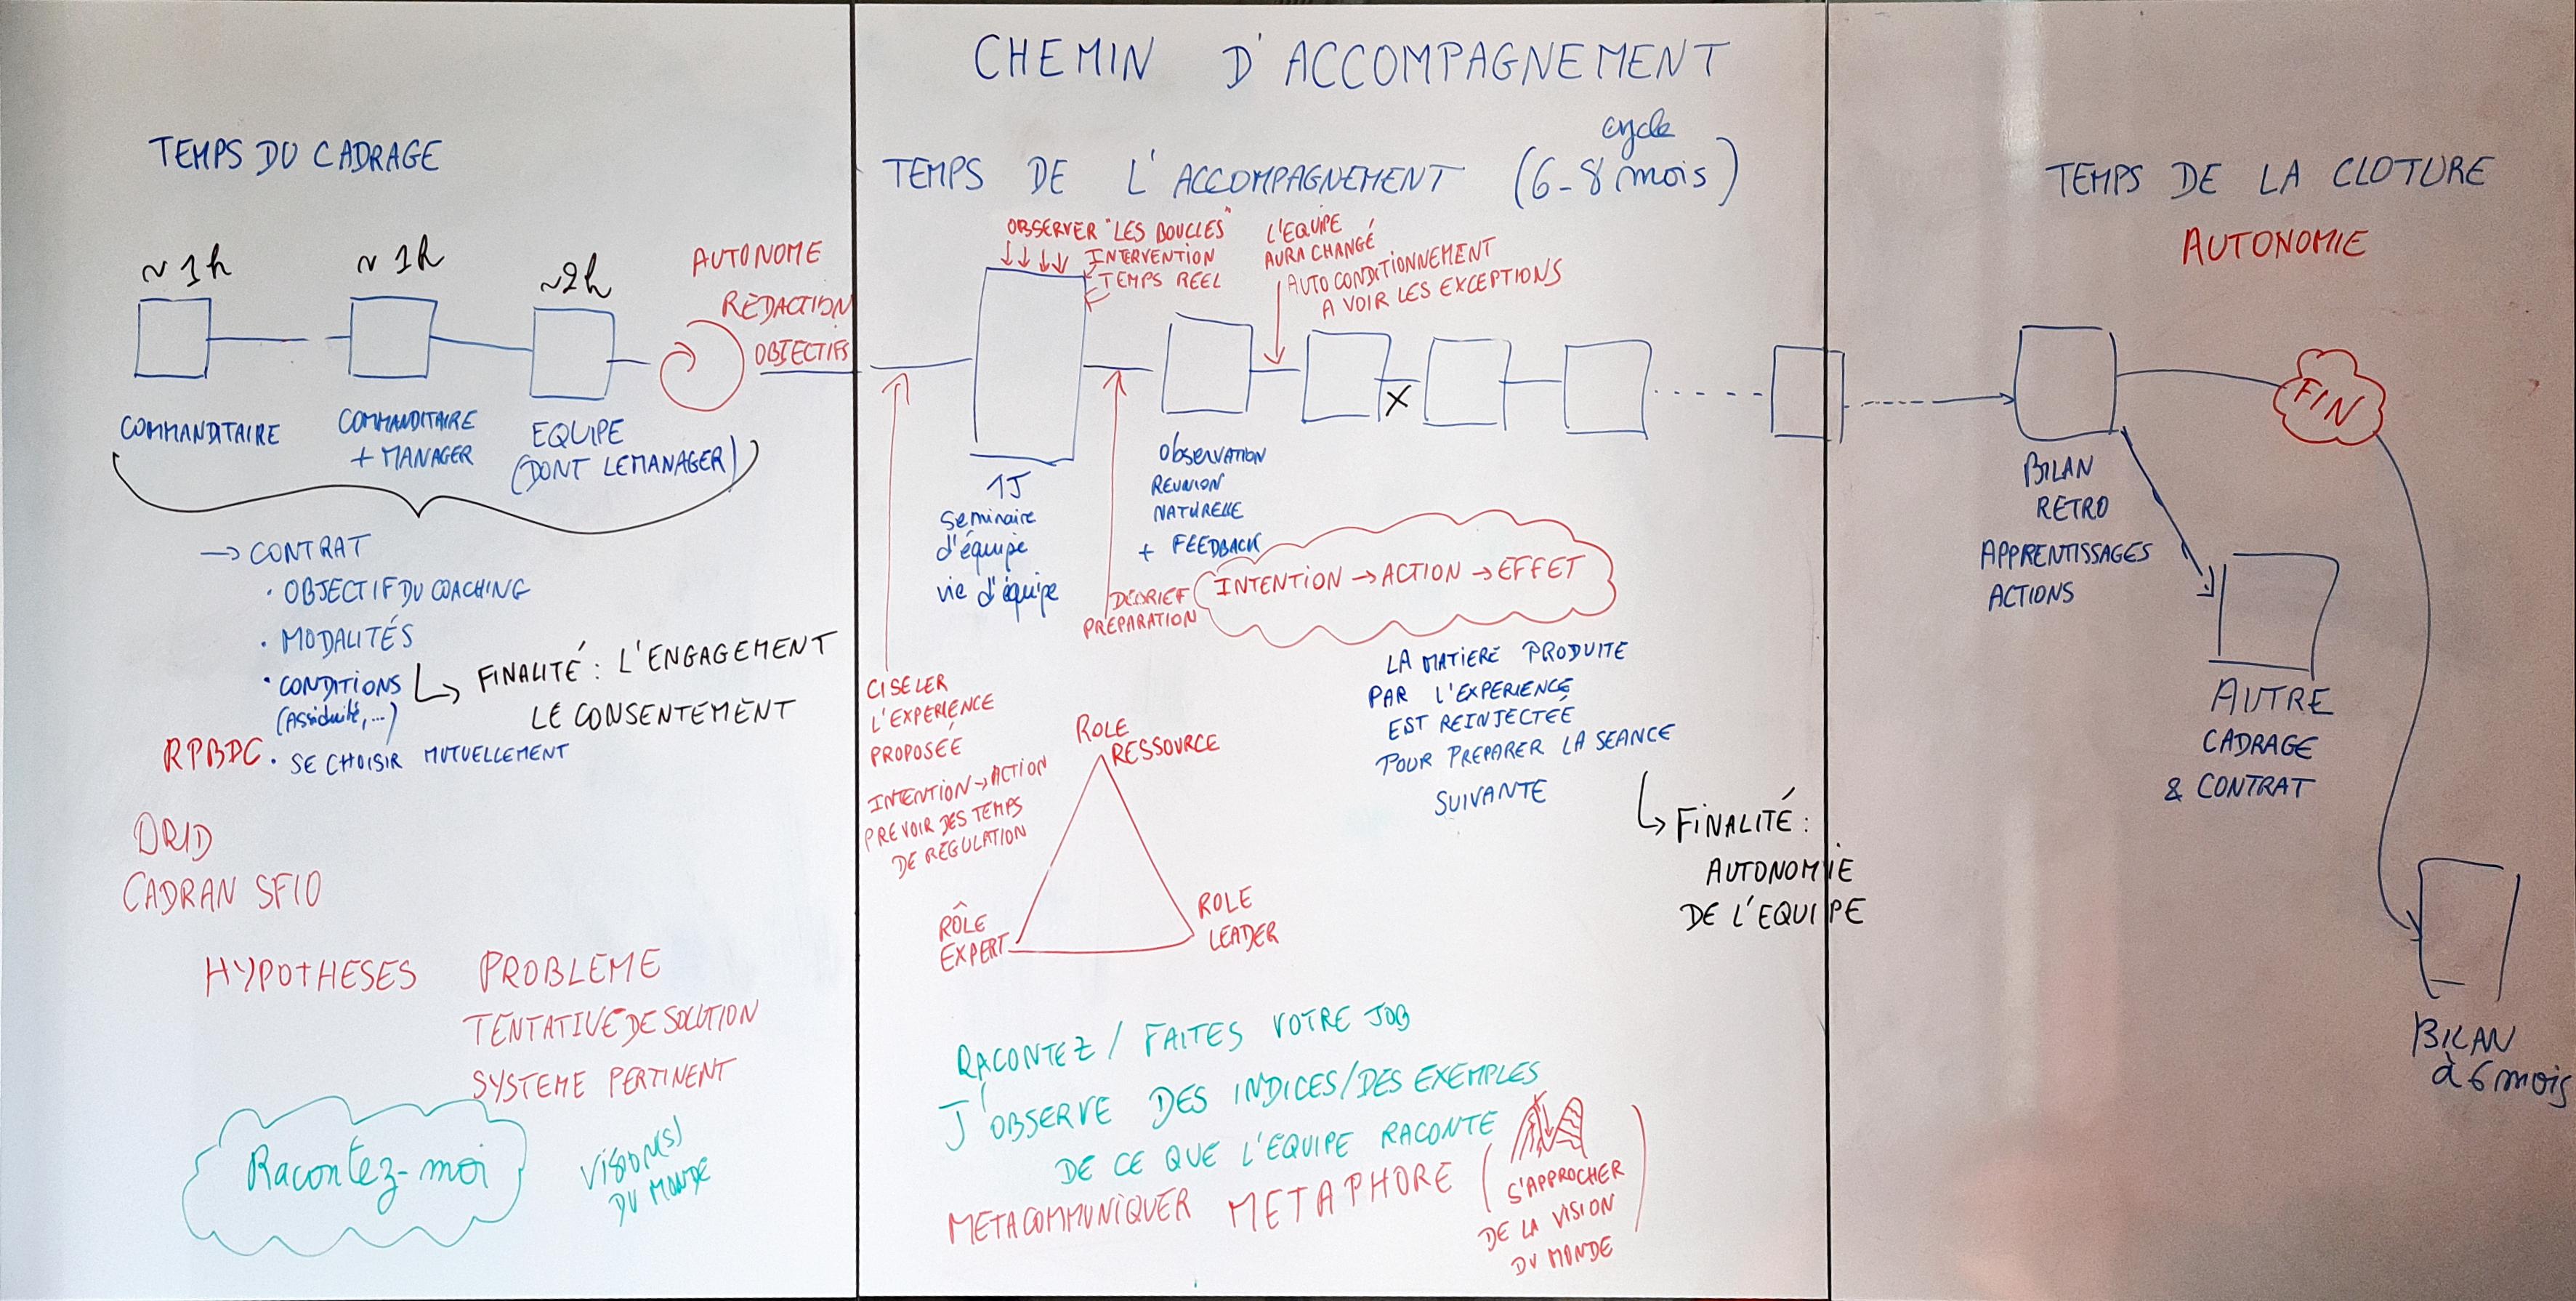 CHEMIN D'ACCOMPAGNEMENT
TEMPS DU CADRAGE
~1h
~1h
~2h
AUTONOME
REDACTION
OBJECTIFS
COMMANDITAIRE
COMMANDITAIRE
+ MANAGER
EQUIPE
(DONT LE MANAGER)
→ CONTRAT
• OBJECTIF DU COACHING
• MODALITÉS
• CONDITIONS
(Assiduité,...)
FINALITÉ : L'ENGAGEMENT
LE CONSENTEMENT
RPBDC • SE CHOISIR MUTUELLEMENT
DRID
CADRAN SFIO
HYPOTHESES PROBLEME
TENTATIVE DE SOLUTION
SYSTEME PERTINENT
Racontez-moi
VISION(S)
DU MONDE
cycle
TEMPS DE L'ACCOMPAGNEMENT (6-8 mois)
OBSERVER "LES BOUCLES"
INTERVENTION
TEMPS REEL
L'EQUIPE
AURA CHANGÉ
AUTO CONDITIONNEMENT
A VOIR LES EXCEPTIONS
X
1J
Seminaire
d'équipe
vie d'équipe
Observation
REUNION
NATURELLE
+ FEEDBACK
DEBRIEF
PREPARATION
INTENTION → ACTION → EFFET
LA MATIERE PRODUITE
PAR L'EXPERIENCE
EST REINJECTEÉ
POUR PREPARER LA SEANCE
SUIVANTE
FINALITÉ :
AUTONOMIE
DE L'EQUIPE
CISELER
L'EXPERIENCE
PROPOSEÉ
INTENTION → ACTION
PREVOIR DES TEMPS
DE REGULATION
ROLE
RESSOURCE
RÔLE
EXPERT
ROLE
LEADER
RACONTEZ / FAITES VOTRE JOB
J'OBSERVE DES INDICES/DES EXEMPLES
DE CE QUE L'EQUIPE RACONTE
METACOMMUNIQUER METAPHORE
(S'APPROCHER
DE LA VISION
DU MONDE)
TEMPS DE LA CLOTURE
AUTONOMIE
FIN
BILAN
RETRO
APPRENTISSAGES
ACTIONS
AUTRE
CADRAGE
& CONTRAT
BILAN
à 6 mois